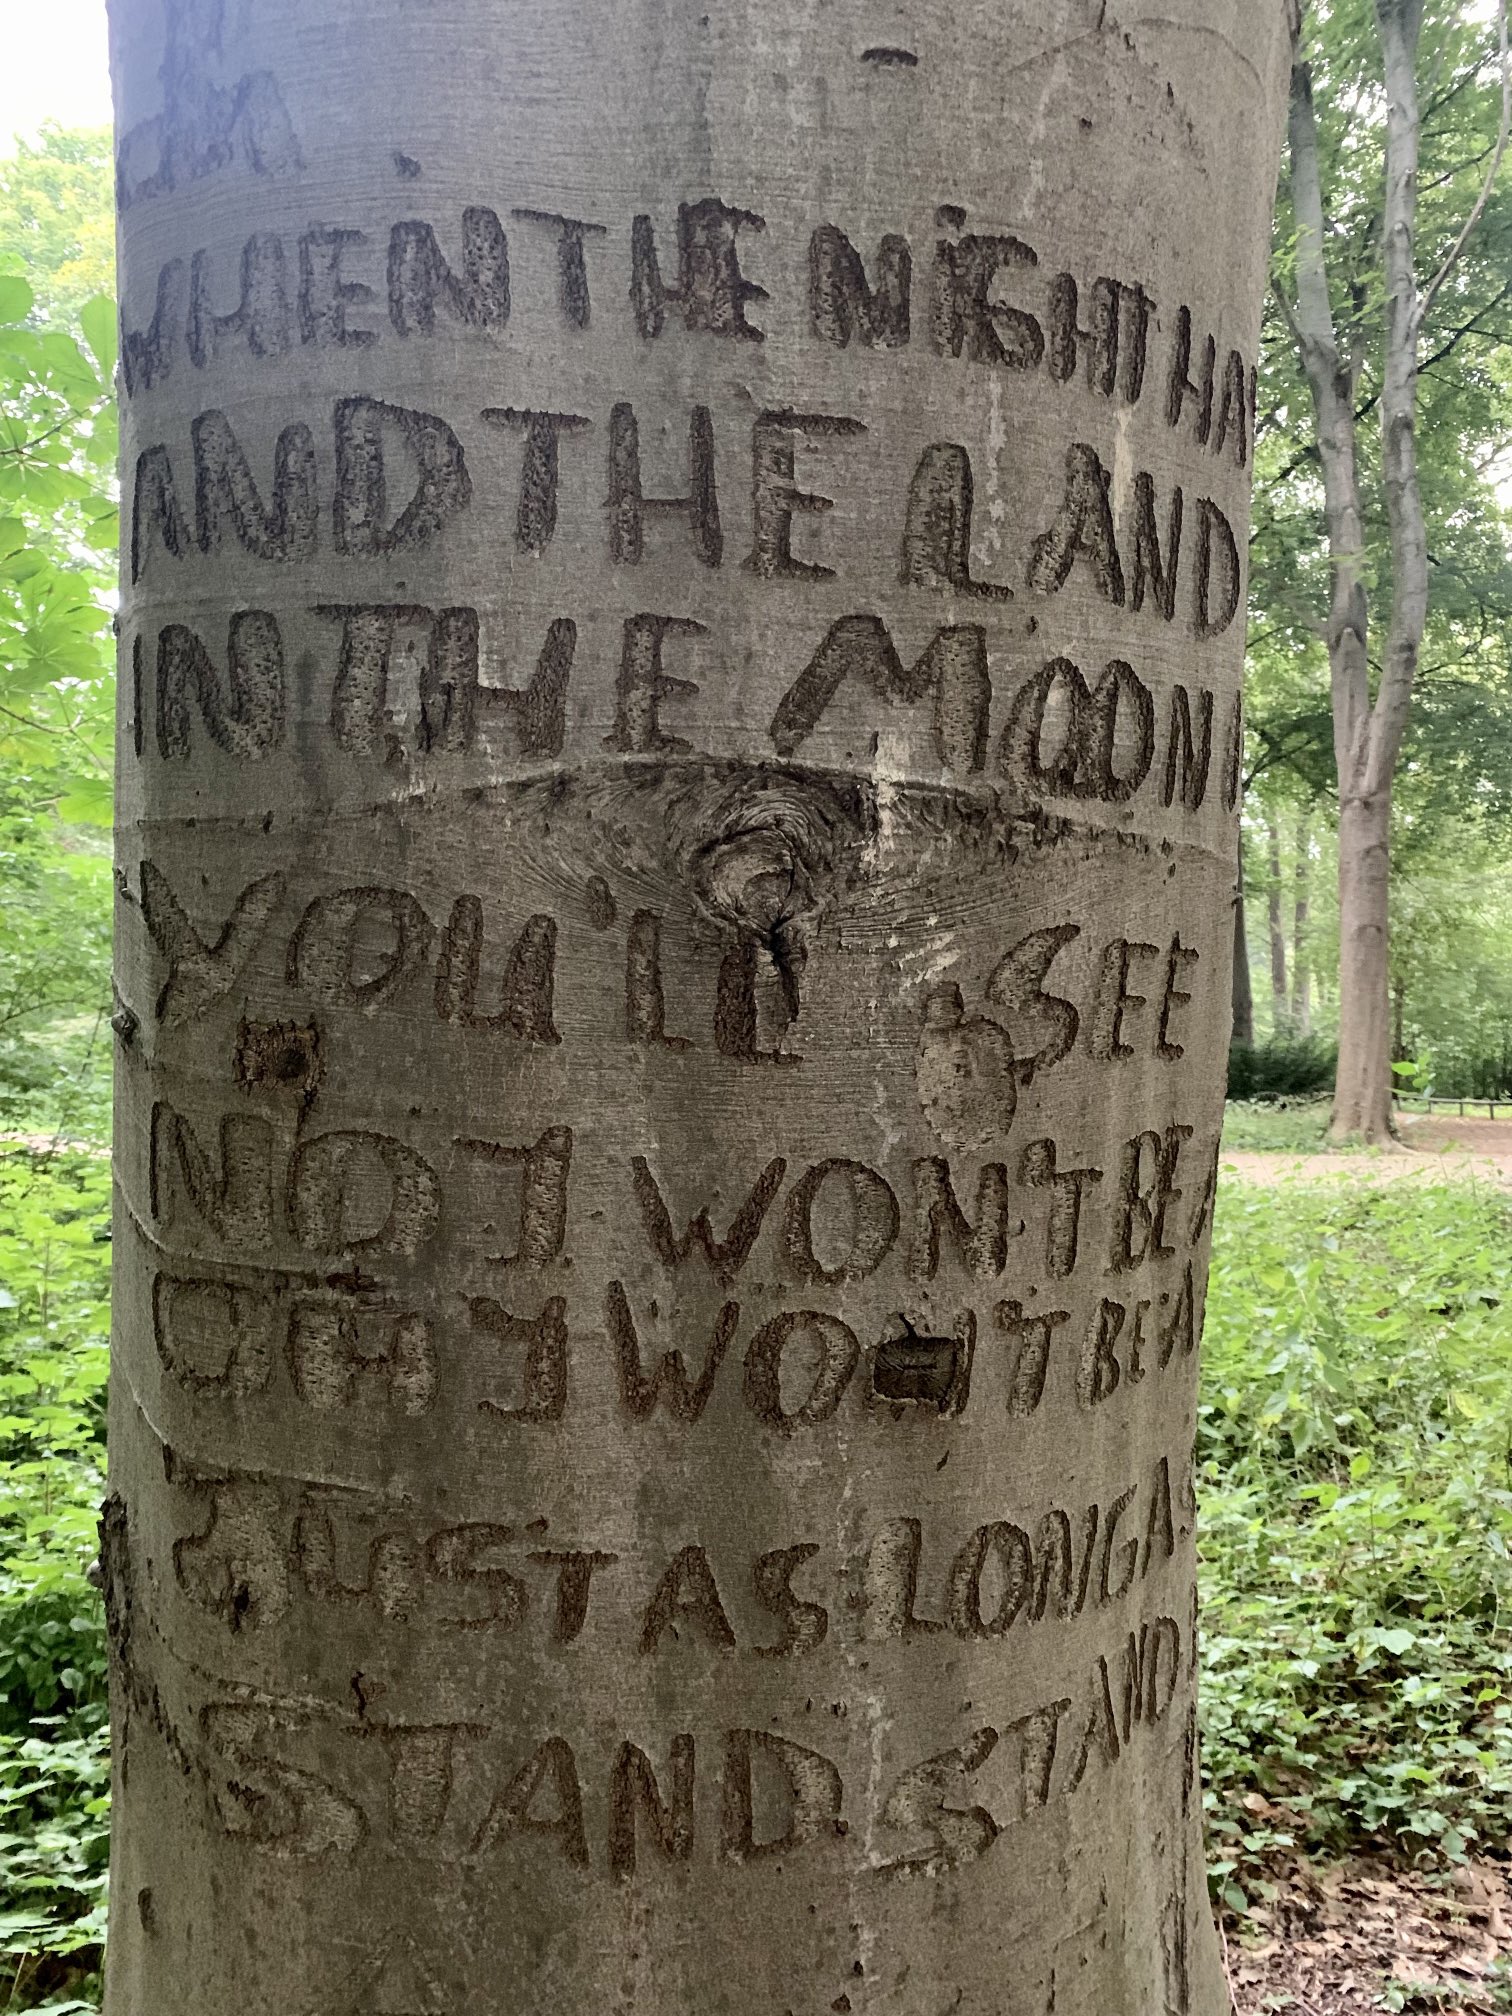 WHEN THE NIGHT HA
AND THE LAND
IN THE MOON
YOU'LL SEE
NO I WON'T BE A
OH I WON'T BE A
JUST AS LONG AS
STAND STAND